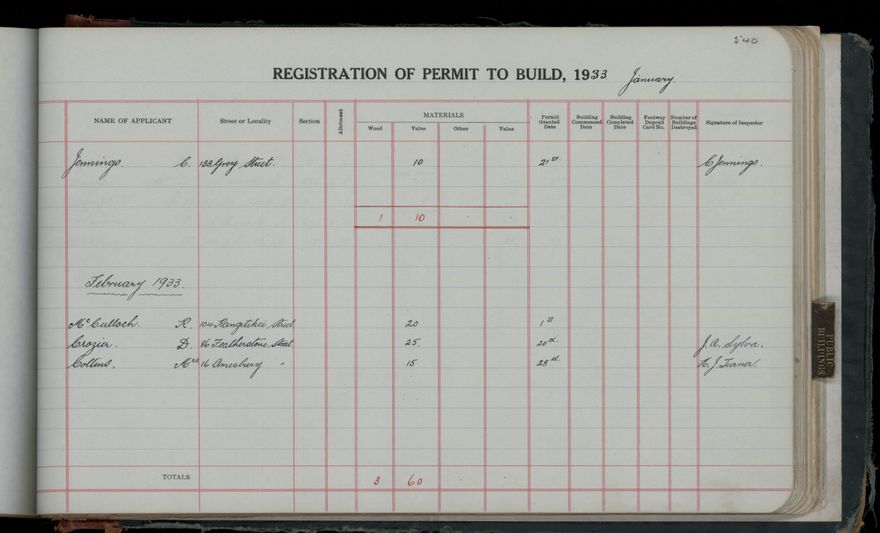 540
REGISTRATION OF PERMIT TO BUILD, 1933 January.
NAME OF APPLICANT Street or Locality Section Allotment MATERIALS Wood Value Other Value Permit Granted Date Building Commenced Date Building Completed Date Footway Deposit Card No. Number of Buildings Destroyed Signature of Inspector
Jennings. C. 133 Grey Street. 10 21st. C Jennings.
1 10 . .
February 1933.
McCulloch. R. 104 Rangitikei Street 20 1st
Crozier. D. 86 Featherstone Street 25 20th. J. A. Sylva.
Collins. Mrs 16 Amesbury " 15 28th. H. J. Turner.
TOTALS 3 60 . .
PUBLIC BUILDINGS